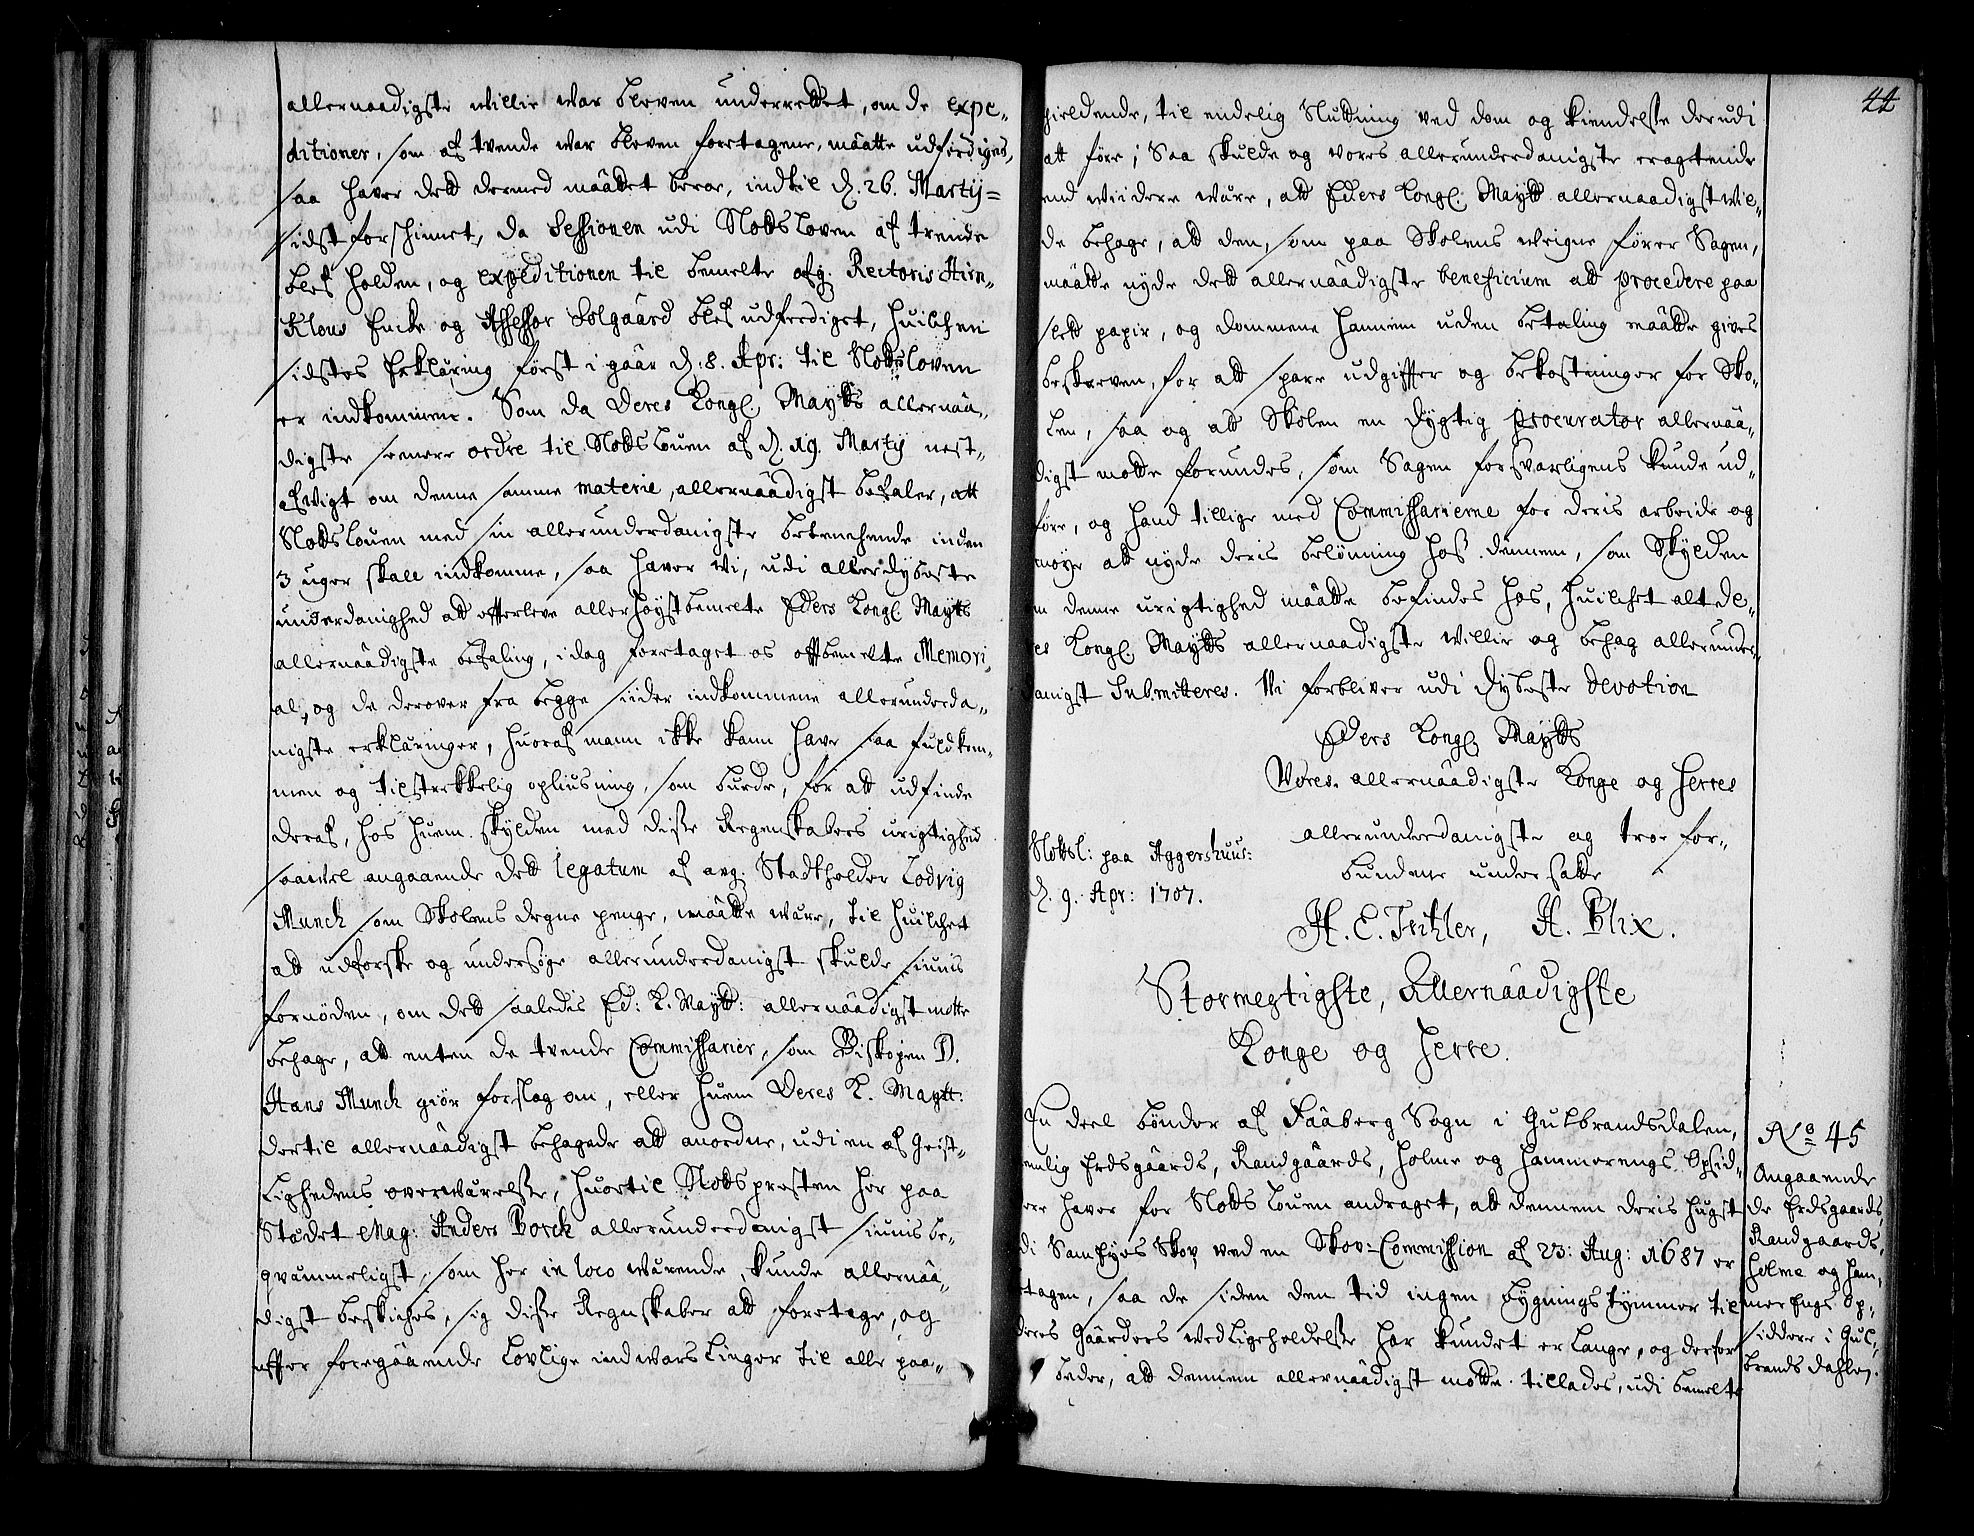 allernaadigste villie var bleven underrettet, om de expe-
ditioner, som af tvende var bleven foretagene, måatte udferdiges,
saa haver dett dermed måattet beroe, indtil d. 26. Martij
sidst forschinnet, da Sessionen udi Slottsloven af trende
blef holden, og expeditionen til bemelte afg. Rectoris Hiru
Klows Encke og Assessor Solgaard blef udferdiget, huilchen
sidstes Erklæring først i gaar d. 8. Apr: til Slottsloven
er indkommen. Som da Deres Kongl. Maytts allernaa-
digste senere ordre til Slottslouen af d. 19. Martij nest-
afvigt om denne samme materie, allernaadigst befaler, att
Slottslouen med sin allerunderdanigste betenchende inden
3 uger skall indkomme, saa haver Vi, udi allerdybeste
underdanighed att efterleve allerhøystbemelte Eders Kongl Maytts
allernaadigste befaling, idag foretaget os offtbemelte Memori-
al, og de derover fra begge siider indkommene allerunderda-
nigste erklæringer, huoraf mann ikke kann have saa fuldkom-
men og tilstrekkelig opliusning, som burde, for att udfinde
deraf, hos huem skylden med disse Regenskabers urigtighed
saavel angaaende dett legatum af avg. Stadtholder Lodvig
Munch som Skolens degne penge, måatte være, til huilchet
att udforske og undersøge allerunderdanigst skulde siunis
fornøden, om dett saaledis Ed: K. Maytt: allernaadigst motte
behage, att enten de tvende Commissarier, som Biskopen D.
Hans Munch giør forslag om, eller huem Deres K. Maytt:
dertil allernaadigst behagede att anordne, udi en af Geist-
lighedens overværelse, huortil Slottsprosten her paa
Stædet Mag: Anders Borch allerunderdanigst siunis be-
qvæmmeligst, som her in loco værende, kunde allernaa-
digst beskiches, sig disse Regnskaber att foretage, og
efter foregaaende lovlige indvarslinger til alle paa-
44
gieldende, til endelig Sluttning ved dom og kiendelse derudi
att føre; Saa skulde og vores allerunderdanigste eragtende
end viidere være, att Eders Kongl. Maytt allernaadigst vil-
de behage, att den, som paa Skolens vegne fører Sagen,
måatte nyde dett allernaadigste beneficium att procedere paa
slett papir, og dommene hannem uden betaling måatte gives
beskreven, for att spare udgiffter og bekostninger for Sko-
len, saa og att Skolen en dygtig procurator allernaa-
digst motte forundes, som Sagen forsvarligens kunde ud-
føre, og hand tillige med Commissarierne for deris arbeide og
møye att nyde deris belønning hos dennem, som Skylden
i denne urigtighed måatte befindes hos, huilchet alt De-
res Kongl. Maytts allernaadigste villie og behag allerunder-
danigst Submitteres. Vi forbliver udi dybeste devotion
Eders Kongl Maytts
Vores allernaadigste Konge og Herres
Slottsl: paa Aggershuus:
d. 9. Apr: 1707.
allerunderdanigste og troe for-
bundene undersatte
H. C. H. Blix.
Stormegtigste, Allernaadigste
Konge og Herre.
En deel bønder af Faaberg Sogn i Gulbrandsdalen,
nemlig Erdsgaards, Randgaards, Holme og Hammerengs Opsid-
dere haver for Slotts Louen andraget, att dennem deris hugst
udi Samfyes Skov ved en Skov-Commission af 23: Aug: 1687 er
tagen, saa de siden den tid ingen bygningstømmer til
deres Gaarders vedligeholdelse har kundet erlange, og derfor
beder, att dennem allernaadigst motte tillades, udi bemelte
No 45
Angaaende
de Erdsgaards,
Randgaards,
Holme og Ham-
merEngs Op-
siddere i Gul-
brandsdahlen.